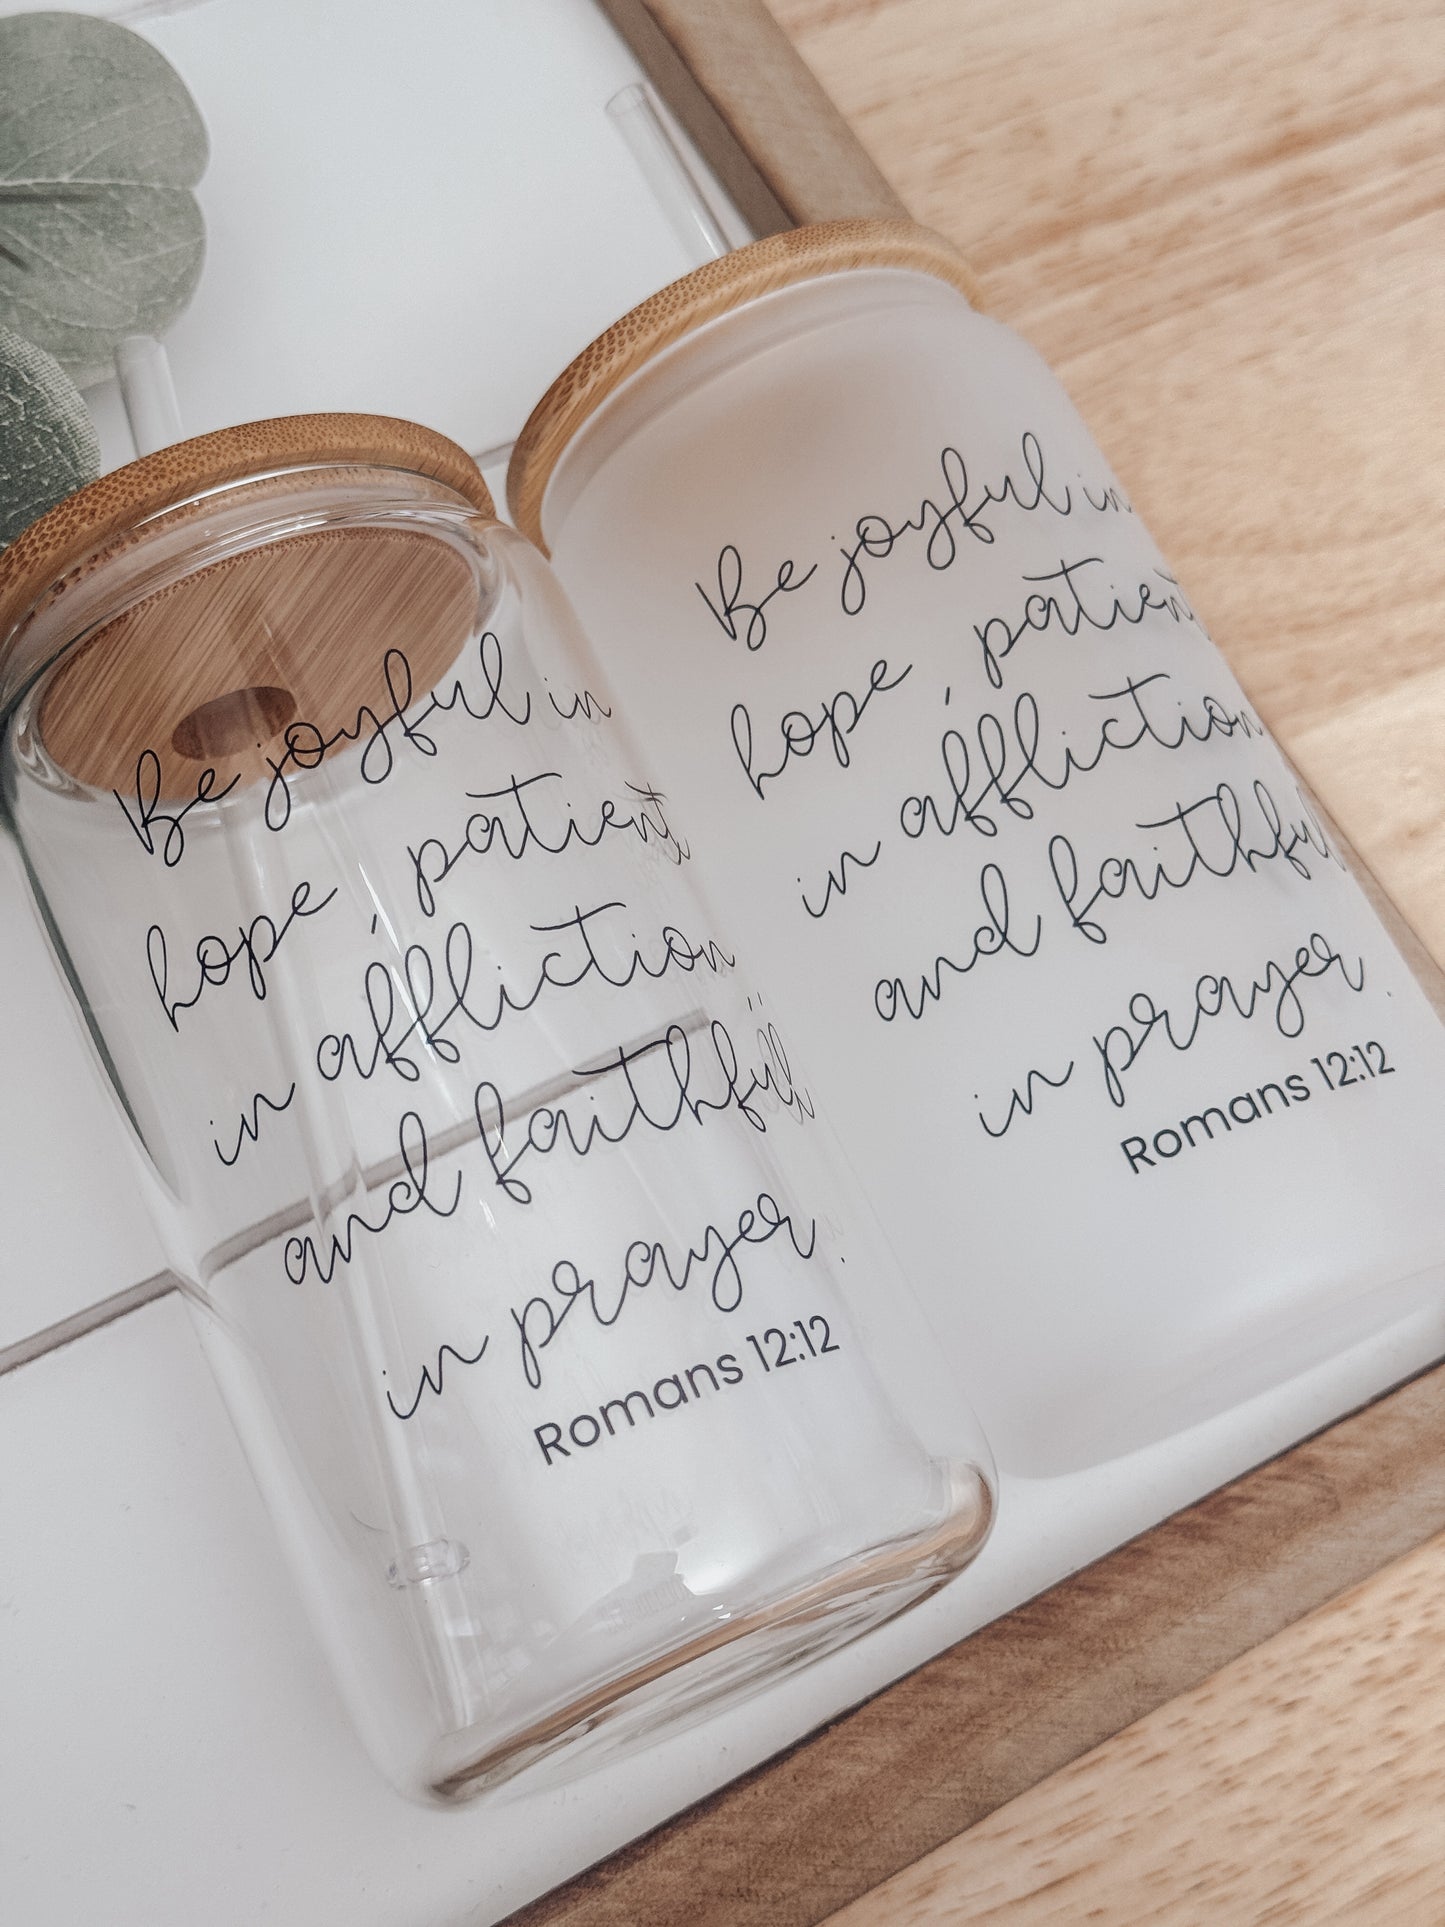 Be joyful in
hope, patient
in affliction
and faithful
in prayer.
Romans 12:12
Be joyful in
hope, patient
in affliction
and faithful
in prayer.
Romans 12:12